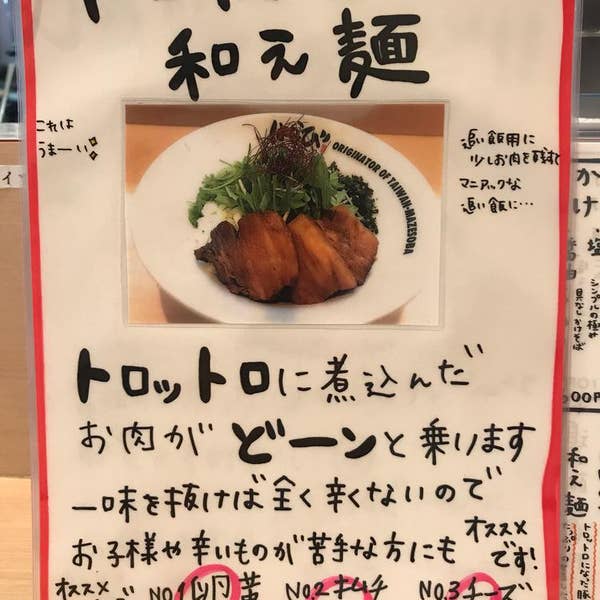 和え麺
これは
うまーい
追い飯用に
少しお肉を残すと
マニアックな
追い飯に…
ORIGINATOR OF TAIWAN-MAZESOBA
トロットロに煮込んだ
お肉がどーンと乗ります
一味を抜けば全く辛くないので
お子様や辛いものが苦手な方にも
オススメ
です!
オススメ
No.1 卵黄 No.2 キムチ No.3 チーズ
かけ
塩
醤油
シンプルの極み
具なしかけそば
00円
和え麺
トロトロになった豚